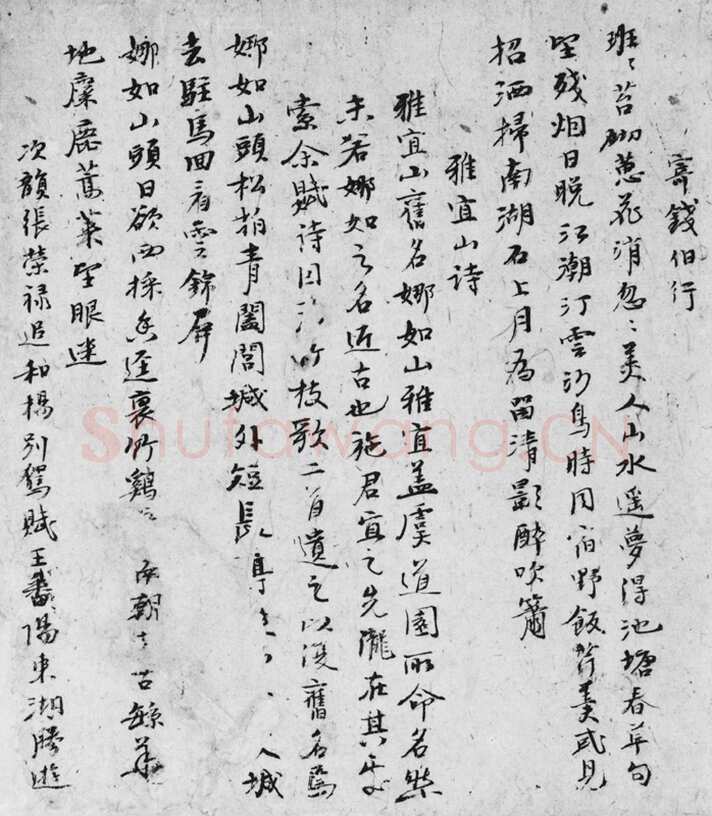 寄錢伯行
班〻苔砌蕙花消忽〻美人山水遥夢得池塘春草句
望殘烟日晚江潮汀雲沙鳥時同宿野飯芹羹或見
招洒掃南湖石上月為留清影醉吹簫
雅宜山詩
雅宜山舊名娜如山雅宜盖虞道園所命名然
未若娜如之名近古也施君宜之先隴在其
索余賦詩因作竹枝歌二首遺之以復舊名焉
娜如山頭松柏青闔閭城外短長亭入城
去駐馬回看雲錦屏
娜如山頭日欲西採香逕裏竹鷄
地麋鹿蒿萊望眼迷
次韻張榮禄追和楊別駕賦王番陽東湖勝遊
Shufawang.CN